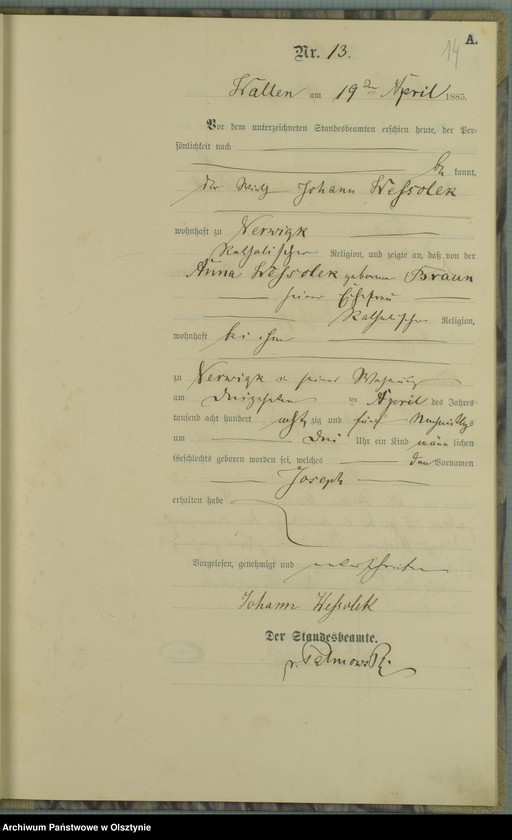 A.
14
Nr. 13.
Wallen am 19ten April 1885.
Vor dem unterzeichneten Standesbeamten erschien heute, der Per-
sönlichkeit nach
be kannt,
der Wirth Johann Wessolek
wohnhaft zu Nerwigk
Katholischer Religion, und zeigte an, daß von der
Anna Wessolek geborene Braun
seiner Ehefrau
Katholischer Religion,
wohnhaft bei ihm
zu Nerwigk in seiner Wohnung
am dreizehnten ten April des Jahres
tausend acht hundert achtzig und fünf Nachmittags
um drei Uhr ein Kind männlichen
Geschlechts geboren worden sei, welches den Vornamen
Joseph
erhalten habe
Vorgelesen, genehmigt und unterschrieben
Johann Wessolek
Der Standesbeamte.
v. Palmowski
Archiwum Państwowe w Olsztynie